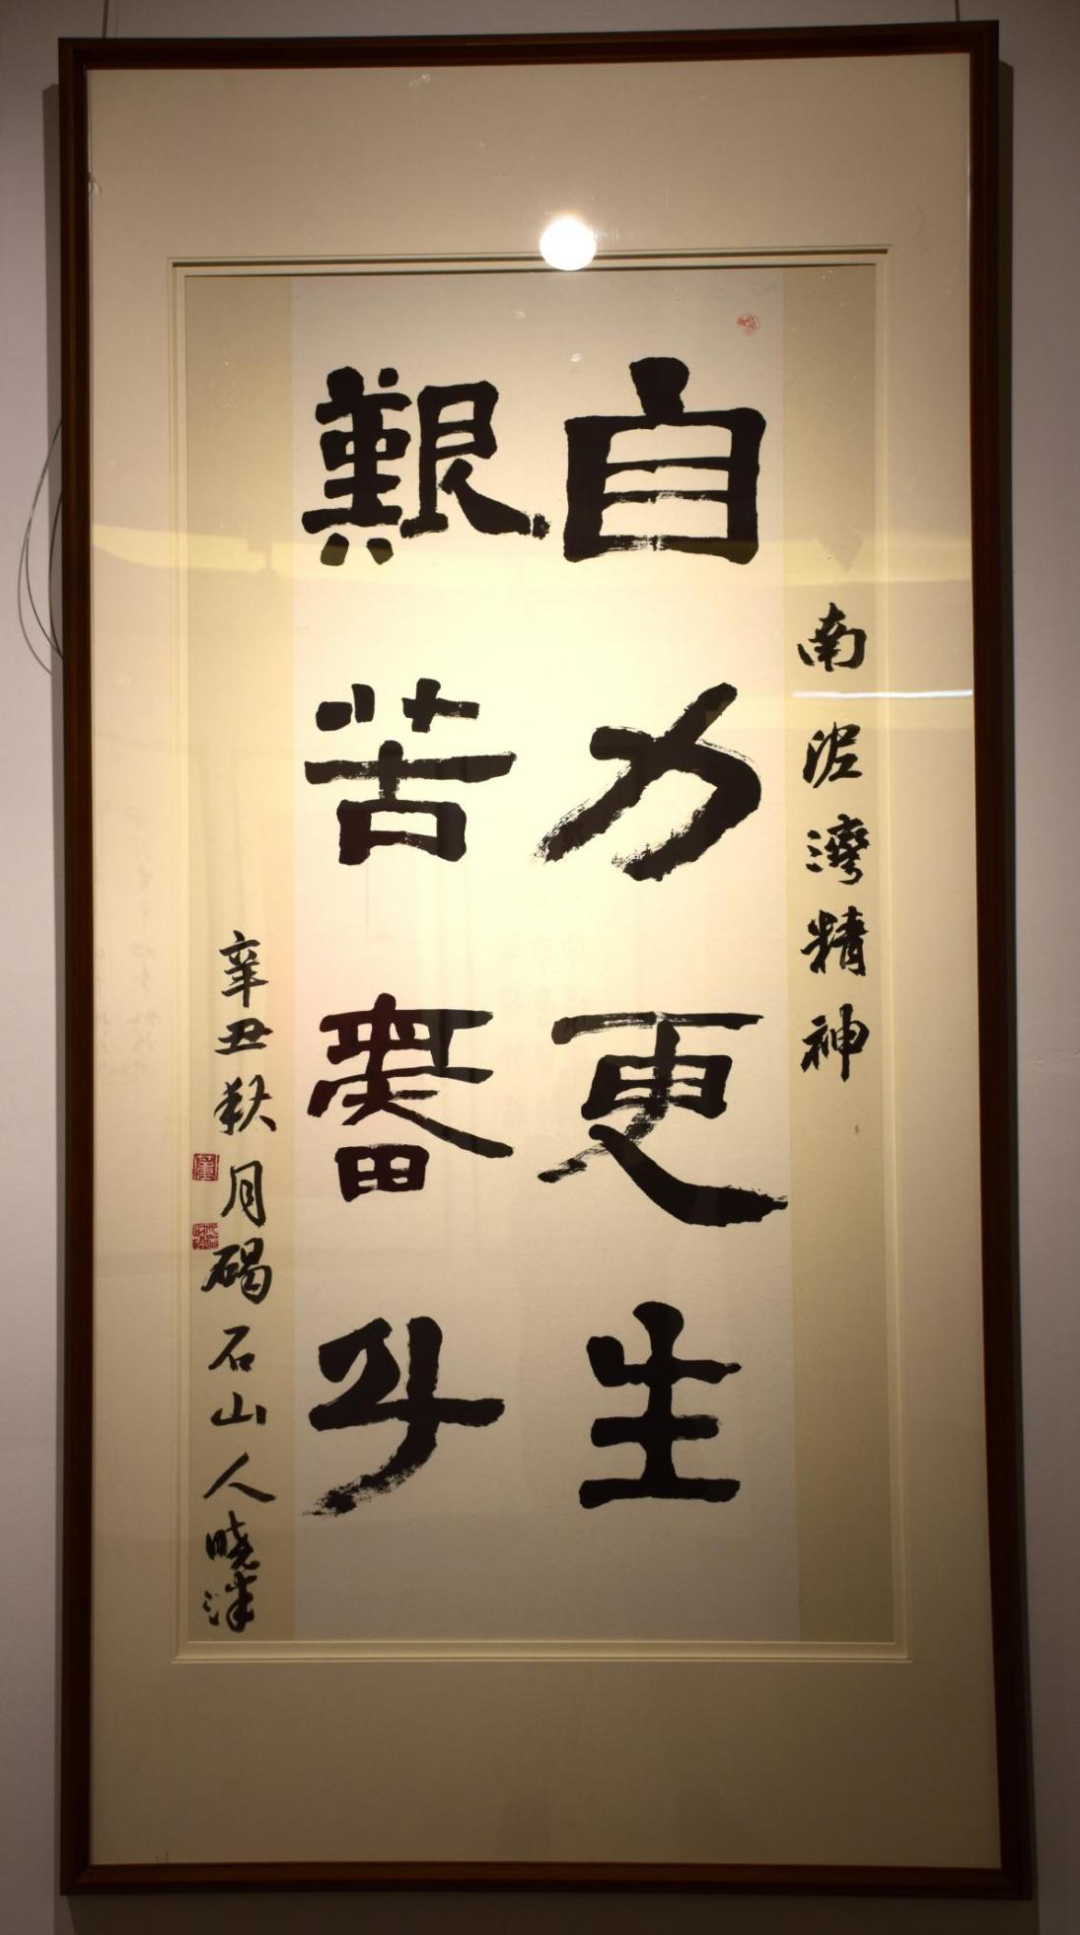 南泥灣精神
自力更生
艱苦奮斗
辛丑秋月碣石山人曉津